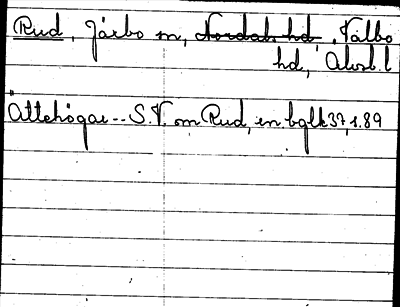 Rud, Järbo sn, Nordals hd, Valbo
hd, Älvsb. l
Ättehögar -- S.V. om Rud, en bglk 37, s. 89